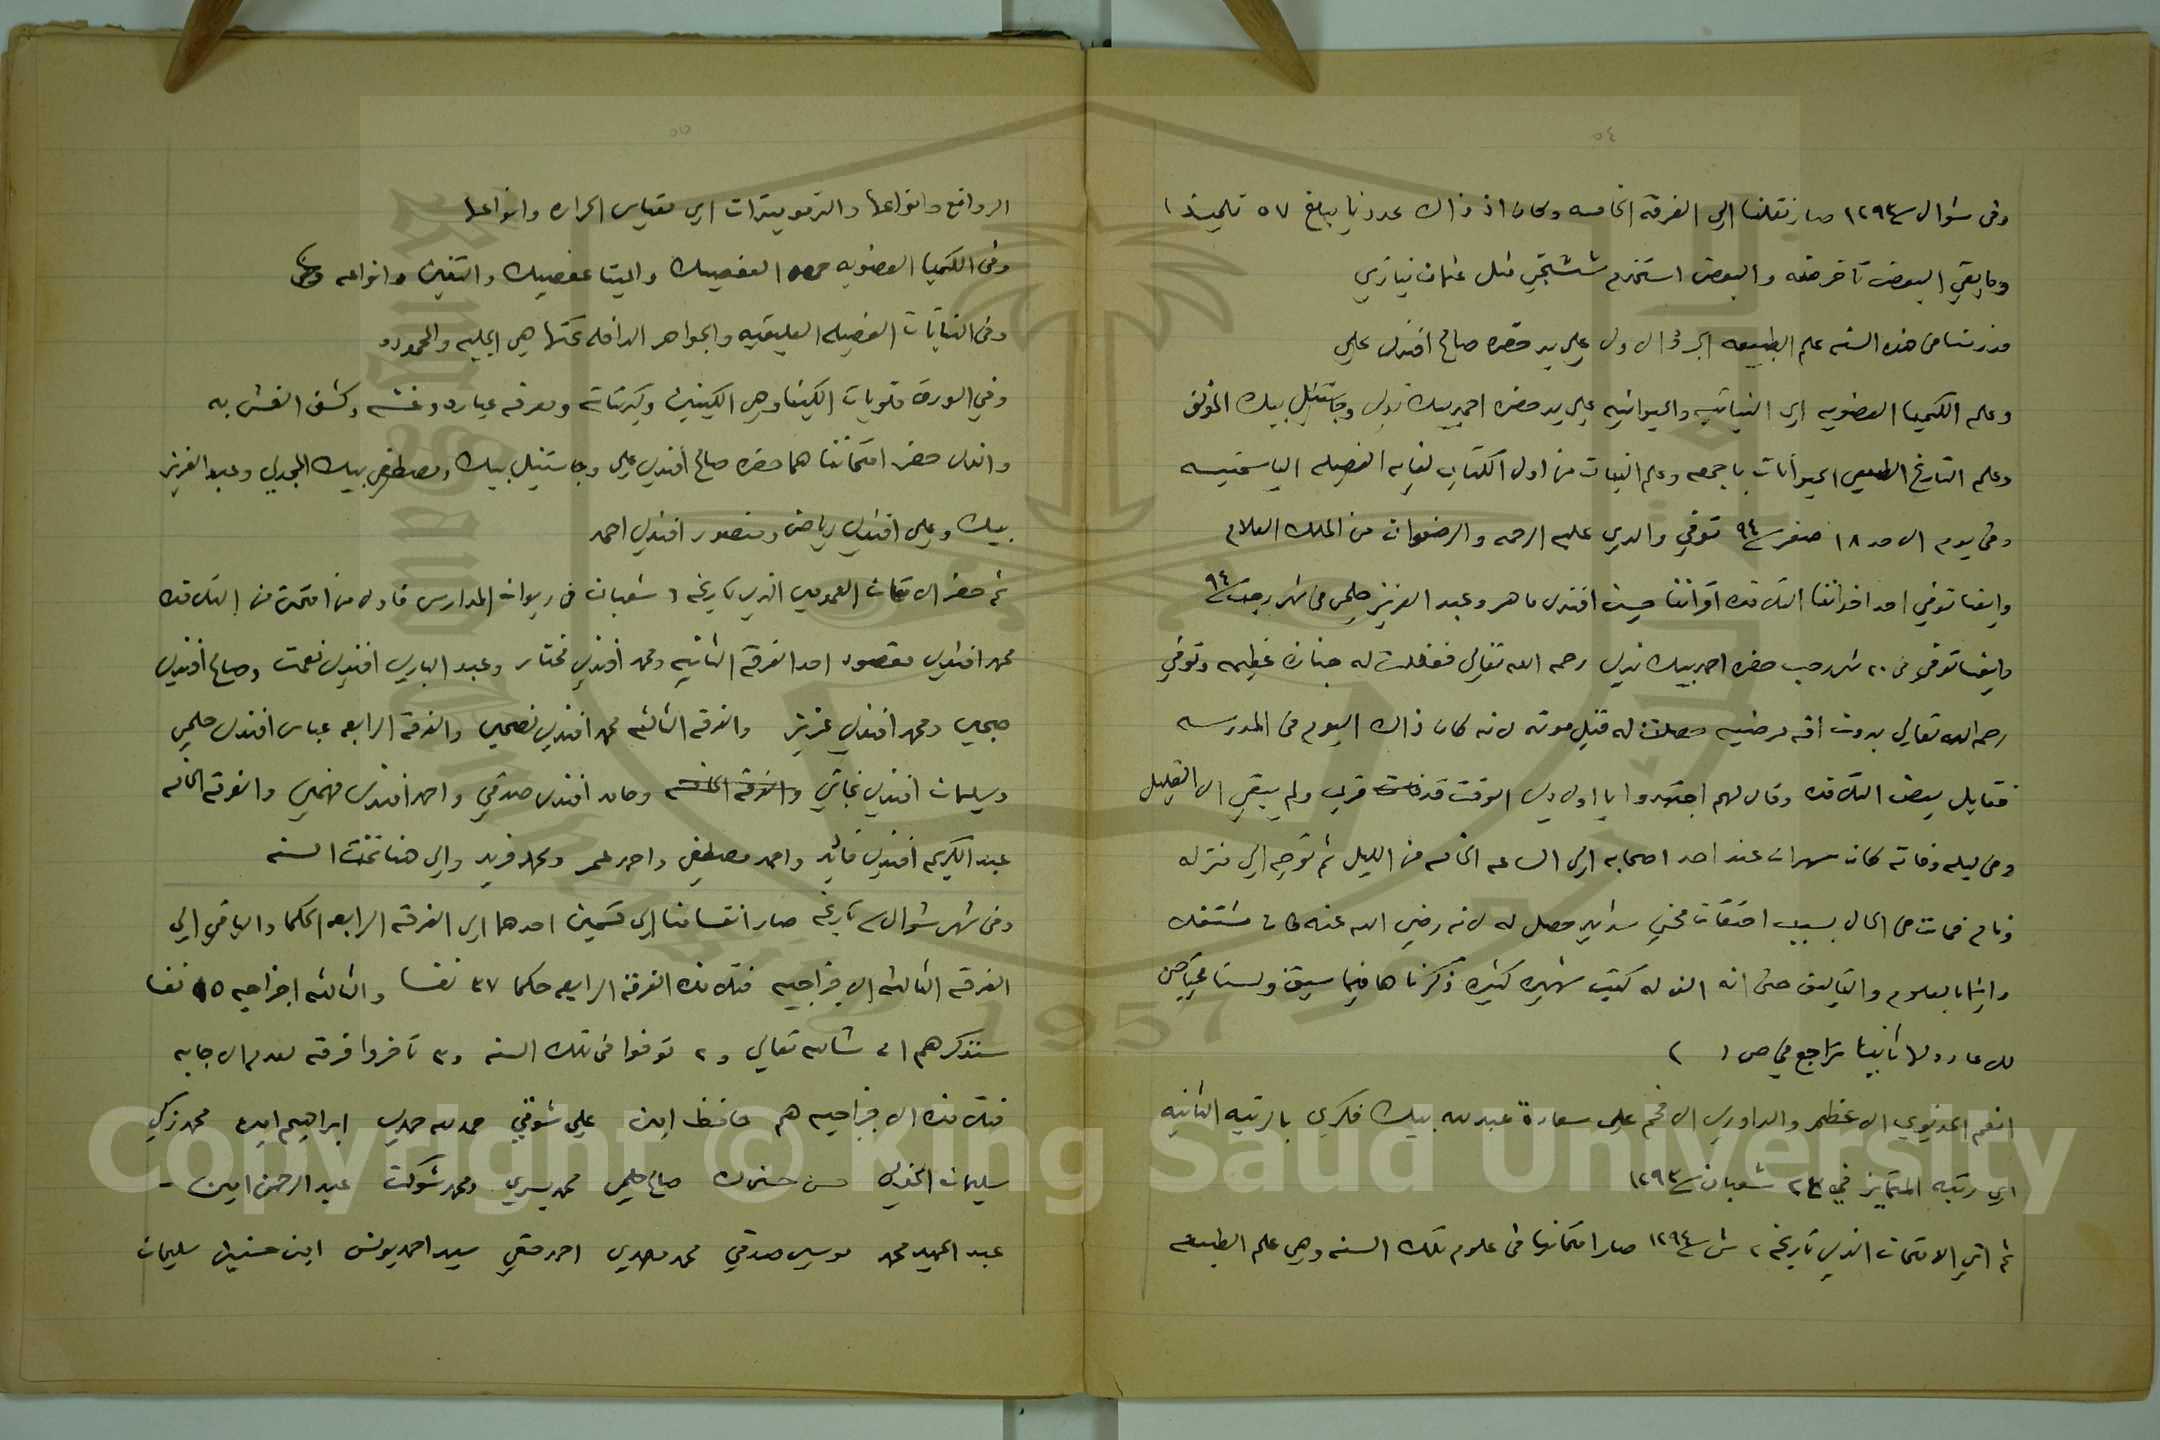 ٥٤
وفى شوال سنة ١٢٩٣ صار نقلنا الى الفرقه الخامسه وكان اذ ذاك عددنا يبلغ ٥٧ تلميذا
وما بقي البعض تأخر منه والبعض استخدم ششنجى مثل عثمان نيازي
فدرسنا فى هذه السنه علم الطبيعه الجزؤ الاول على يد حضرة صالح افندى على
وعلم الكيميا العضويه اى النباتيه والحيوانيه على يد حضرة احمد بيك ندى وجاستنيل بيك المؤلف
وعلم التاريخ الطبيعى الحيوانات باجمعه وعلم النبات من اول الكتاب لغاية الفصيله الياسمنيسه
وفى يوم الاحد ١٨ صفر سنة ٩٤ توفي والدي عليه الرحمه والرضوان من الملك العلام
وايضا توفي احد اخواننا التلامذه اقراننا حسين افندى ماهر وعبد العزيز حلمى فى شهر رجب سنة ٩٤
وايضا توفى فى ٢٠ شهر رجب حضرة احمد بيك ندى رحمه الله تعالى فعملت له جنازه عظيمه وتوفي
رحمه الله تعالى بدون اقه مرضيه حصلت له قبل موته لانه كان ذاك اليوم فى المدرسه
فقابل بعض التلامذه وقال لهم اجتهدوا يا اولادى الوقت قد قرب ولم يبقى الا القليل
وفى ليلة وفاته كان سهران عند احد اصحابه الى الساعه الخامسه من الليل ثم توجه الى منزله
ونام فمات فى الحال بسبب احتقان مخى حصل له لانه رضى الله عنه كان مشتغلا
دائما بالعلوم والتاليف حتى انه الف له كتب شهيره كثيره ذكرناها فيما سبق ولسنا محتاجين
للاعادولها ثانيا تراجع في ص ( )
انعم الخديوي الاعظم والداوري الافخم على سعادة عبد لله بيك فكري بالرتبه الثانيه
اي رتبه المتمايز في ٢٤ شعبان سنة ١٢٩٣
ثم اتي الامتحان الذي تاريخه ٢ ش سنة ١٢٩٤ صار امتحاننا فى علوم تلك السنه وهى علم الطبيعه
٥٥
الروافع وانواعها والترمومترات اى مقياس الحراره وانواعها
وفى الكيميا العضويه حمض العفصيك والميتا عفصيك والتنين وانواعه
وفى النباتات الفصيله العليقيه والجواهر الداخله تحتها هى الجلبه والمحموده
وفي السورة قلويات الكينا وهى الكينين وكبرتاته ومعرفه عياره وغشه وكشف الغش به
والذى حضر امتحاننا هما حضرة صالح أفندى على وجاستنيل بيك ومصطفى بيك المجدلى وعبد العزيز
بيك وعلى افندى رياض ومنصور افندى احمد
ثم حضر الامتحان العمومى الذى تاريخه ٦ شعبان فى ديوان المدارس فاول من امتحن من التلامذه
محمد افندى مقصود احد الفرقه الثانيه ومحمد أفندى مختار وعبد البارى افندى نعمت وصالح أفندى
صبحى ومحمد افندى عزيز والفرقه الثالثه محمد افندى نصحى والفرقه الرابعه عباس افندى حلمى
وسليمان افندى نجاتى والفرقه الخامسه وحامد افندى صدقى واحمد افندى فهمى والفرقه الخامسه
عبد الكريم افندى فائد واحمد مصطفى واحمد عمر ومحمد فريد والى هنا تمت السنه
وفى شهر شوال سنة تاريخه صار انقسامنا الى قسمين احدهما الى الفرقه الرابعه الحكما والباقى الى
الفرقه الثالثه الاجزاجيه فتلامذة الفرقه الرابعه حكما ٣٧ نفسا والثالثه اجزاجيه ١٥ نفسا
سنذكرهم ان شا الله تعالى و٢ توفوا فى تلك السنه و٣ تاخروا فرقه لعدم الاجابه
فتلامذة الاجزاجيه هم حافظ امين على شوقى حمد لله حمدى ابراهيم ادهم محمد زكى
سليمان الخولى حسن حسنى صالح حلمى محمد يسري ومحمد شوكت عبد الرحمن امين -
عبد الحميد محمد موسى صدقى محمد مهدى احمد حقى سيد احمد يونس امين حسنين سليمان
Copyright © King Saud University
1957